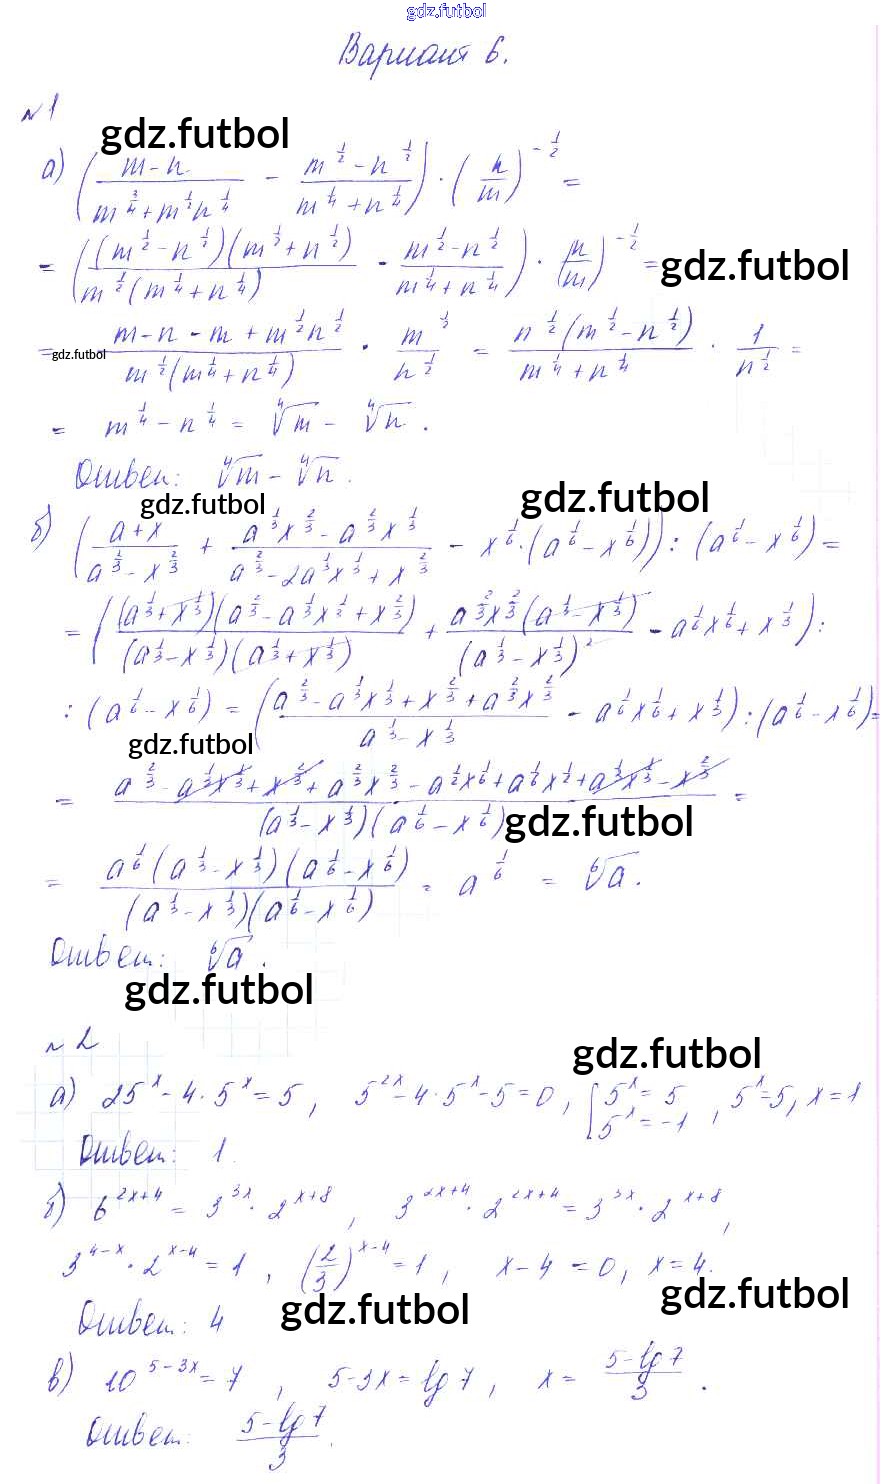 gdz.futbol
Вариант 6.
№ 1
gdz.futbol
а) ((m − n)/(m^(3/4) + m^(1/2)n^(1/4)) − (m^(1/2) − n^(1/2))/(m^(1/4) + n^(1/4))) · (n/m)^(−1/2) =
= (((m^(1/2) − n^(1/2))(m^(1/2) + n^(1/2)))/(m^(1/2)(m^(1/4) + n^(1/4))) − (m^(1/2) − n^(1/2))/(m^(1/4) + n^(1/4))) · (n/m)^(−1/2) =
gdz.futbol
= (m − n − m + m^(1/2)n^(1/2))/(m^(1/2)(m^(1/4) + n^(1/4))) · m^(1/2)/n^(1/2) = (n^(1/2)(m^(1/2) − n^(1/2)))/(m^(1/4) + n^(1/4)) · 1/n^(1/2) =
gdz.futbol
= m^(1/4) − n^(1/4) = ∜m − ∜n .
Ответ: ∜m − ∜n .
gdz.futbol
gdz.futbol
б) ((a + x)/(a^(1/3) − x^(2/3)) + (a^(1/3)x^(2/3) − a^(2/3)x^(1/3))/(a^(2/3) − 2a^(1/3)x^(1/3) + x^(2/3)) − x^(1/6) · (a^(1/6) − x^(1/6))) : (a^(1/6) − x^(1/6)) =
= (((a^(1/3) + x^(1/3))(a^(2/3) − a^(1/3)x^(1/3) + x^(2/3)))/((a^(1/3) − x^(1/3))(a^(1/3) + x^(1/3))) + (a^(2/3)x^(2/3)(a^(1/3) − x^(1/3)))/(a^(1/3) − x^(1/3))^2 − a^(1/6)x^(1/6) + x^(1/3)) :
: (a^(1/6) − x^(1/6)) = ((a^(2/3) − a^(1/3)x^(1/3) + x^(2/3) + a^(2/3)x^(2/3))/(a^(1/3) − x^(1/3)) − a^(1/6)x^(1/6) + x^(1/3)) : (a^(1/6) − x^(1/6)) =
gdz.futbol
= (a^(2/3) − a^(1/3)x^(1/3) + x^(2/3) + a^(2/3)x^(2/3) − a^(1/2)x^(1/6) + a^(1/6)x^(1/2) + a^(1/3)x^(1/3) − x^(2/3))/((a^(1/3) − x^(1/3))(a^(1/6) − x^(1/6))) =
gdz.futbol
= (a^(1/6)(a^(1/3) − x^(1/3))(a^(1/6) − x^(1/6)))/((a^(1/3) − x^(1/3))(a^(1/6) − x^(1/6))) = a^(1/6) = ⁶√a .
Ответ: ⁶√a .
gdz.futbol
№ 2
gdz.futbol
а) 25^x − 4 · 5^x = 5 , 5^(2x) − 4 · 5^x − 5 = 0 , [5^x = 5 5^x = −1 , 5^x = 5, x = 1
Ответ: 1.
б) 6^(2x+4) = 3^(3x) · 2^(x+8) , 3^(2x+4) · 2^(2x+4) = 3^(3x) · 2^(x+8) ,
3^(4−x) · 2^(x−4) = 1 , (2/3)^(x−4) = 1 , x − 4 = 0, x = 4.
gdz.futbol
gdz.futbol
Ответ: 4
в) 10^(5−3x) = 7 , 5 − 3x = lg 7 , x = (5 − lg 7)/3 .
Ответ: (5 − lg 7)/3 .